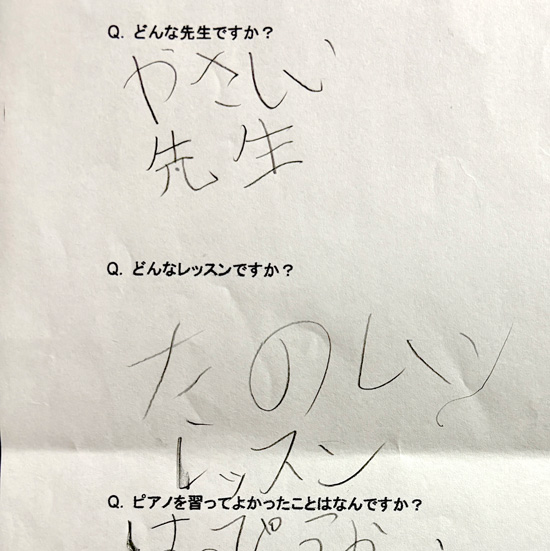 Q. どんな先生ですか？
やさしい
先生
Q. どんなレッスンですか？
たのしい
レッスン
Q. ピアノを習ってよかったことはなんですか？
はっぴょうか